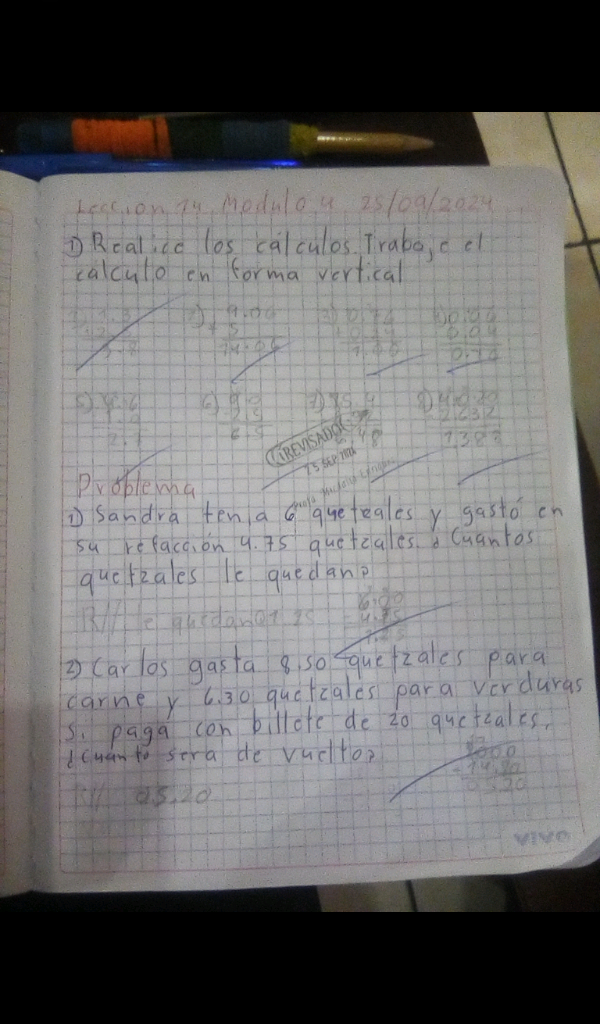 Leccion 14 Modulo 4 25/09/2024
1) Realice los cálculos. Trabaje el
cálculo en forma vertical
2) 9.06 3) 0.76 4) 0.06
+ 5 0.04
14.06 0.10
5) 6) 90 7) 8) 4.020
25 - 2.632
2.7 65 1.388
¡REVISADO!
25 SEP 2024
Problema
1) Sandra tenia 6 quetzales y gastó en
su refacción 4.75 quetzales. ¿Cuantos
quetzales le quedan?
R// le quedan Q1.25 6.00
- 4.75
1.25
2) Carlos gasta 8.50 quetzales para
carne y 6.30 quetzales para verduras
si paga con billete de 20 quetzales.
¿Cuanto sera de vuelto?
- 14.80
R// Q5.20 05.20